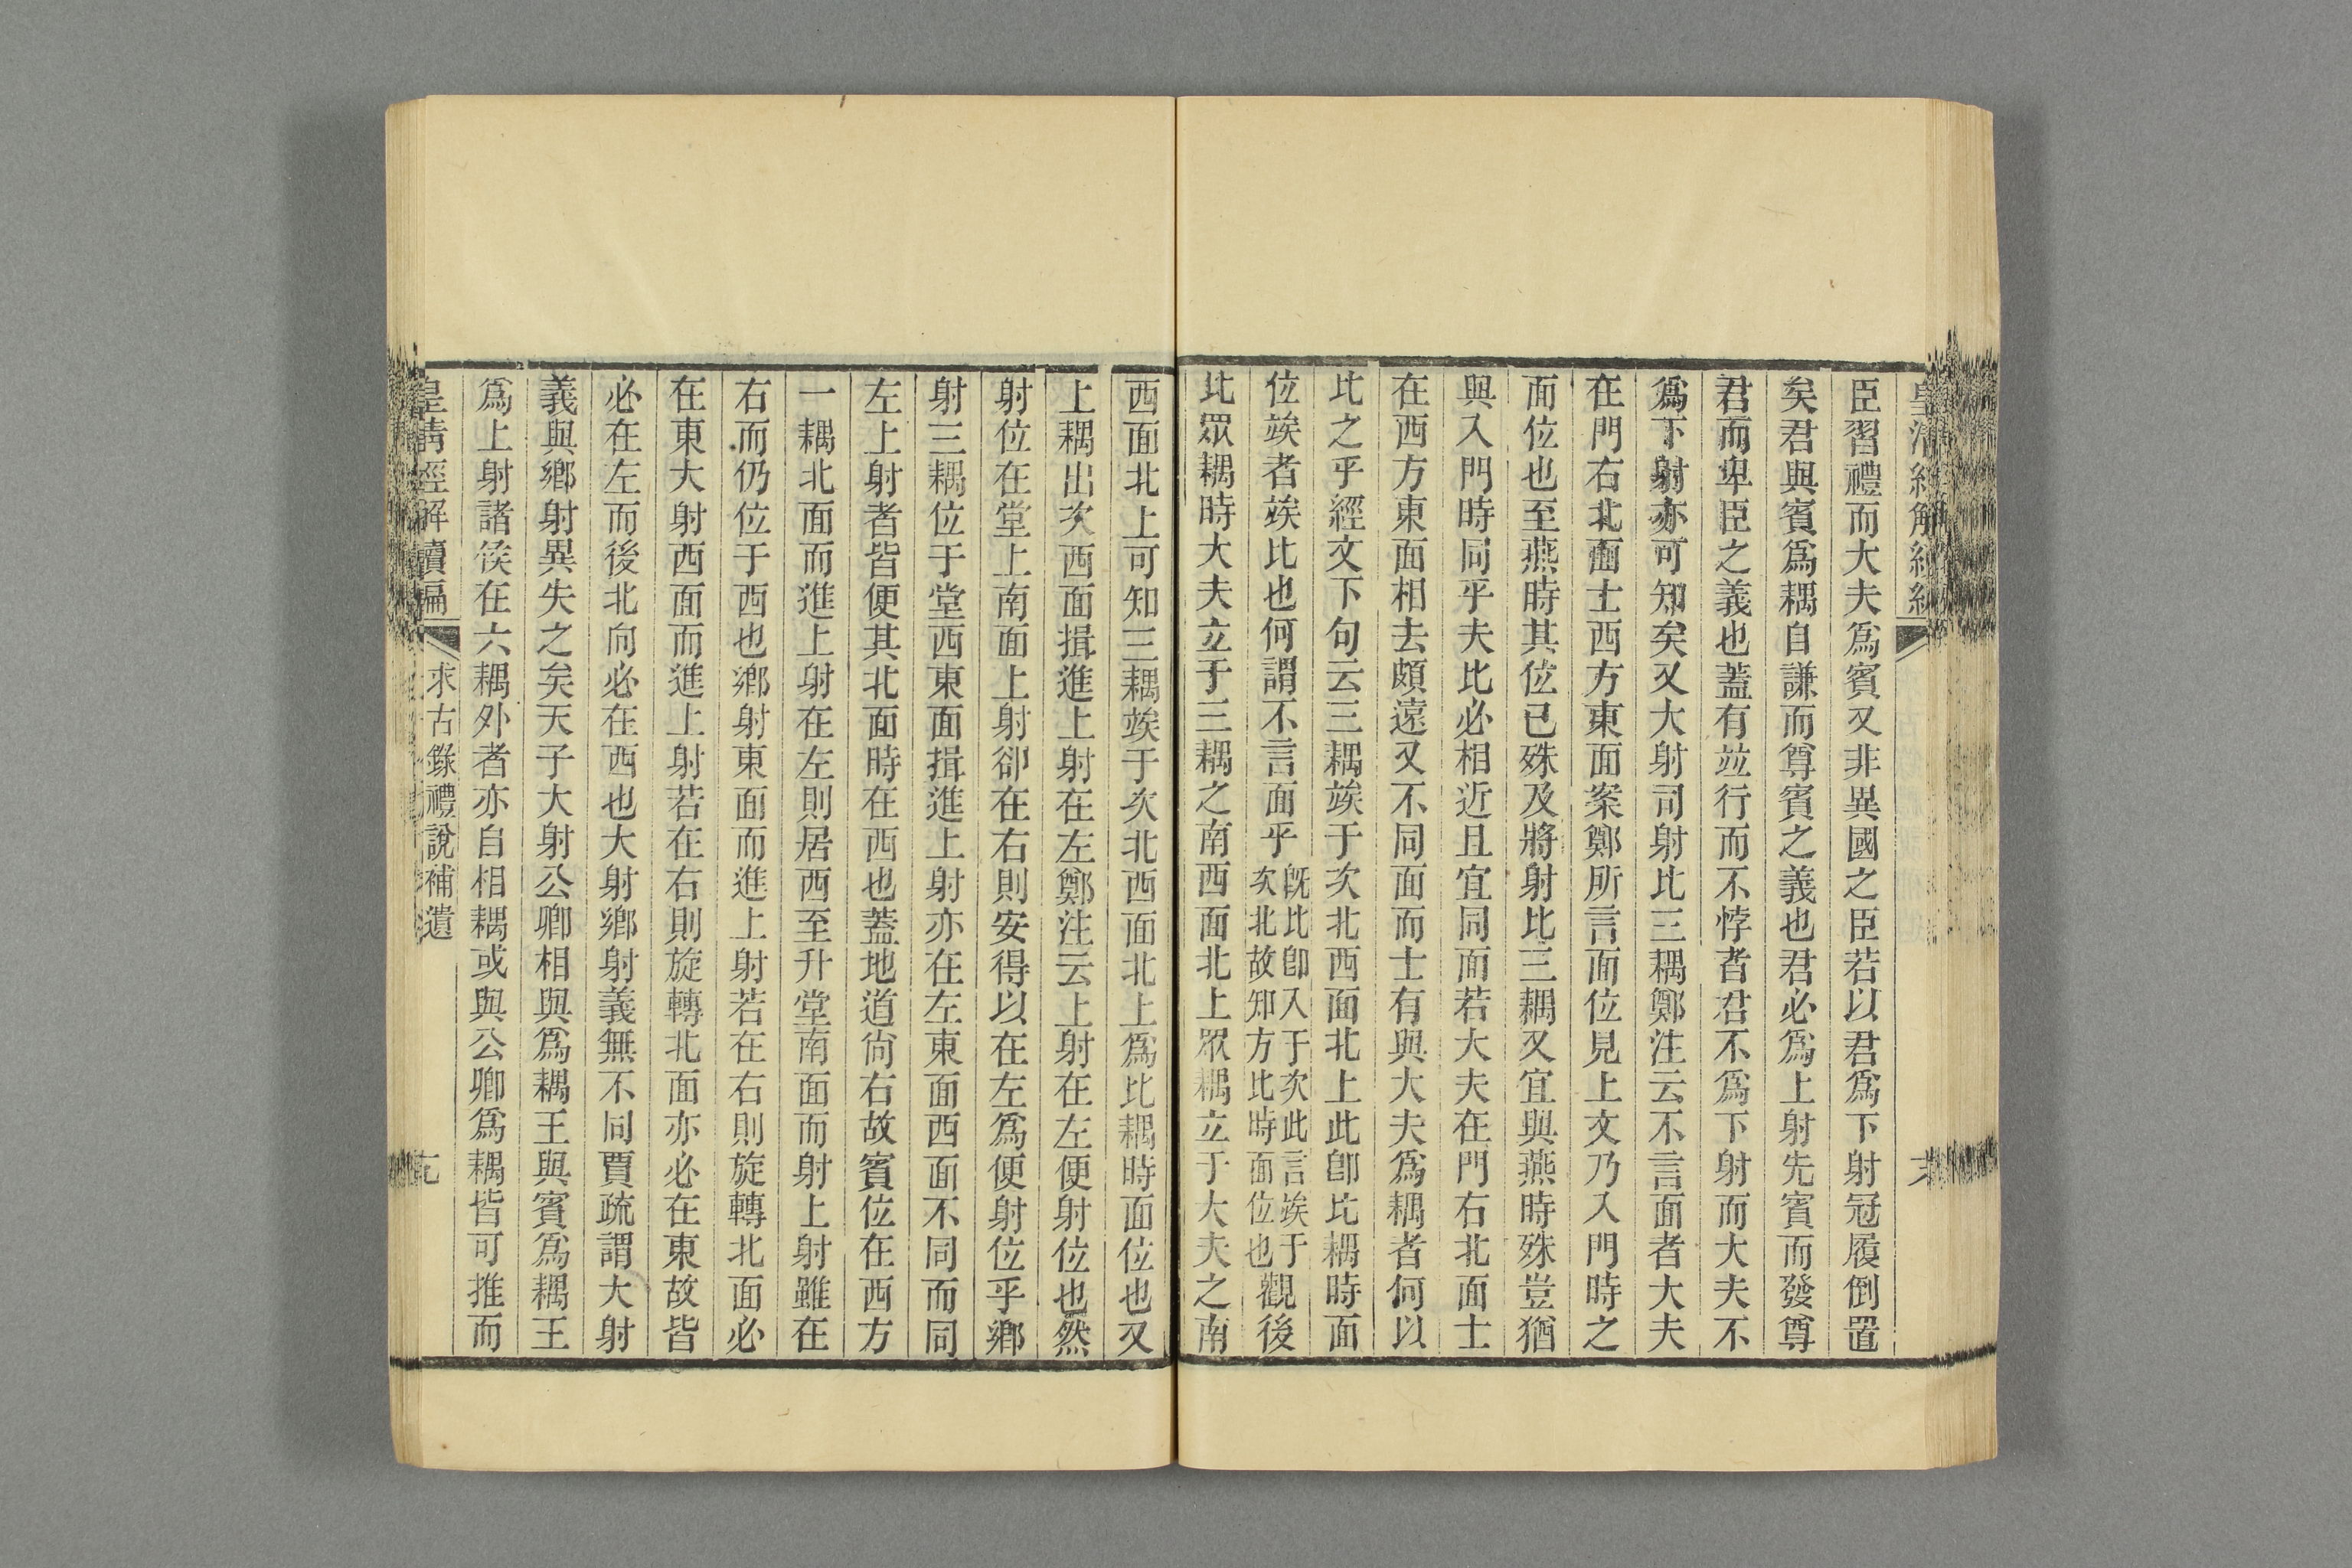 臣習禮而大夫爲賓又非異國之臣若以君爲下射冠履倒置
矣君與賓爲耦自謙而尊賓之義也君必爲上射先賓而發尊
君而卑臣之義也蓋有竝行而不悖者君不爲下射而大夫不
爲下射亦可知矣又大射司射比三耦鄭注云不言面者大夫
在門右北面士西方東面案鄭所言面位見上文乃入門時之
面位也至燕時其位已殊及將射比三耦又宜與燕時殊豈猶
與入門時同乎夫比必相近且宜同面若大夫在門右北面士
在西方東面相去頗遠又不同面而士有與大夫爲耦者何以
比之乎經文下句云三耦竢于次北西面北上此卽比耦時面
位竢者竢比也何謂不言面乎旣比卽入于次此言竢于次北故知方比時面位也觀後
比眾耦時大夫立于三耦之南西面北上眾耦立于大夫之南
西面北上可知三耦竢于次北西面北上爲比耦時面位也又
上耦出次西面揖進上射在左鄭注云上射在左便射位也然
射位在堂上南面上射卻在右則安得以在左爲便射位乎鄉
射三耦位于堂西東面揖進上射亦在左東面西面不同而同
左上射者皆便其北面時在西也蓋地道尙右故賓位在西方
一耦北面而進上射在左則居西至升堂南面而射上射雖在
右而仍位于西也鄉射東面而進上射若在右則旋轉北面必
在東大射西面而進上射若在右則旋轉北面亦必在東故皆
必在左而後北向必在西也大射鄉射義無不同賈疏謂大射
義與鄉射異失之矣天子大射公卿相與爲耦王與賓爲耦王
爲上射諸侯在六耦外者亦自相耦或與公卿爲耦皆可推而
皇清經解續編
求古錄禮說補遺